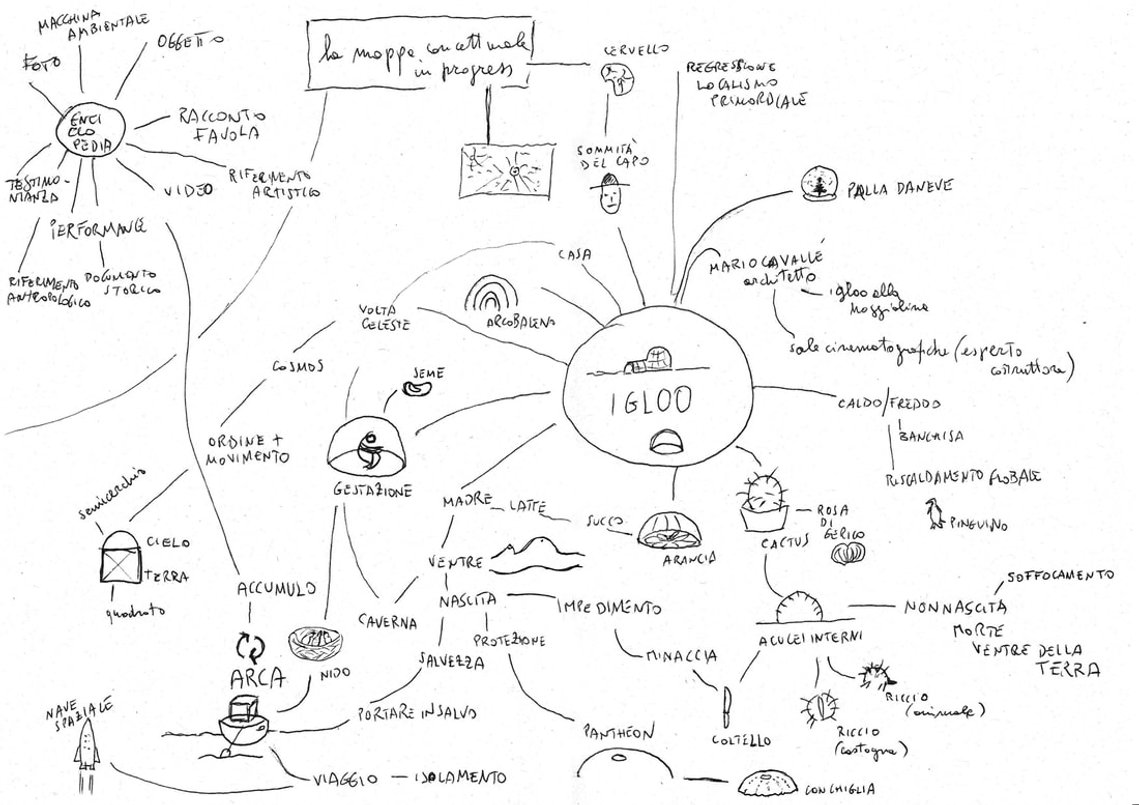 MACCHINA
AMBIENTALE
OGGETTO
FOTO
ENCI
CLO
PEDIA
RACCONTO
FAVOLA
TESTIMO-
NIANZA
VIDEO
RIFERIMENTO
ARTISTICO
PERFORMANCE
RIFERIMENTO
ANTROPOLOGICO
DOCUMENTO
STORICO
la mappa concettuale
in progress
CERVELLO
REGRESSIONE
LOCALISMO
PRIMORDIALE
SOMMITÀ
DEL CAPO
PALLA DANEVE
CASA
MARIO CAVALLÉ
architetto
igloo alla
Maggiolina
sale cinematografiche (esperto
costruttore)
ARCOBALENO
VOLTA
CELESTE
COSMOS
SEME
IGLOO
CALDO/FREDDO
BANCHISA
RISCALDAMENTO GLOBALE
PINGUINO
ORDINE +
MOVIMENTO
GESTAZIONE
MADRE
LATTE
SUCCO
ARANCIA
CACTUS
ROSA
DI
GERICO
semicerchio
CIELO
TERRA
quadrato
VENTRE
ACCUMULO
CAVERNA
NASCITA
IMPEDIMENTO
PROTEZIONE
ACULEI INTERNI
SOFFOCAMENTO
NON NASCITA
MORTE
VENTRE DELLA
TERRA
SALVEZZA
MINACCIA
NIDO
ARCA
RICCIO
(animale)
RICCIO
(castagna)
NAVE
SPAZIALE
PORTARE IN SALVO
PANTHEON
COLTELLO
VIAGGIO — ISOLAMENTO
CONCHIGLIA